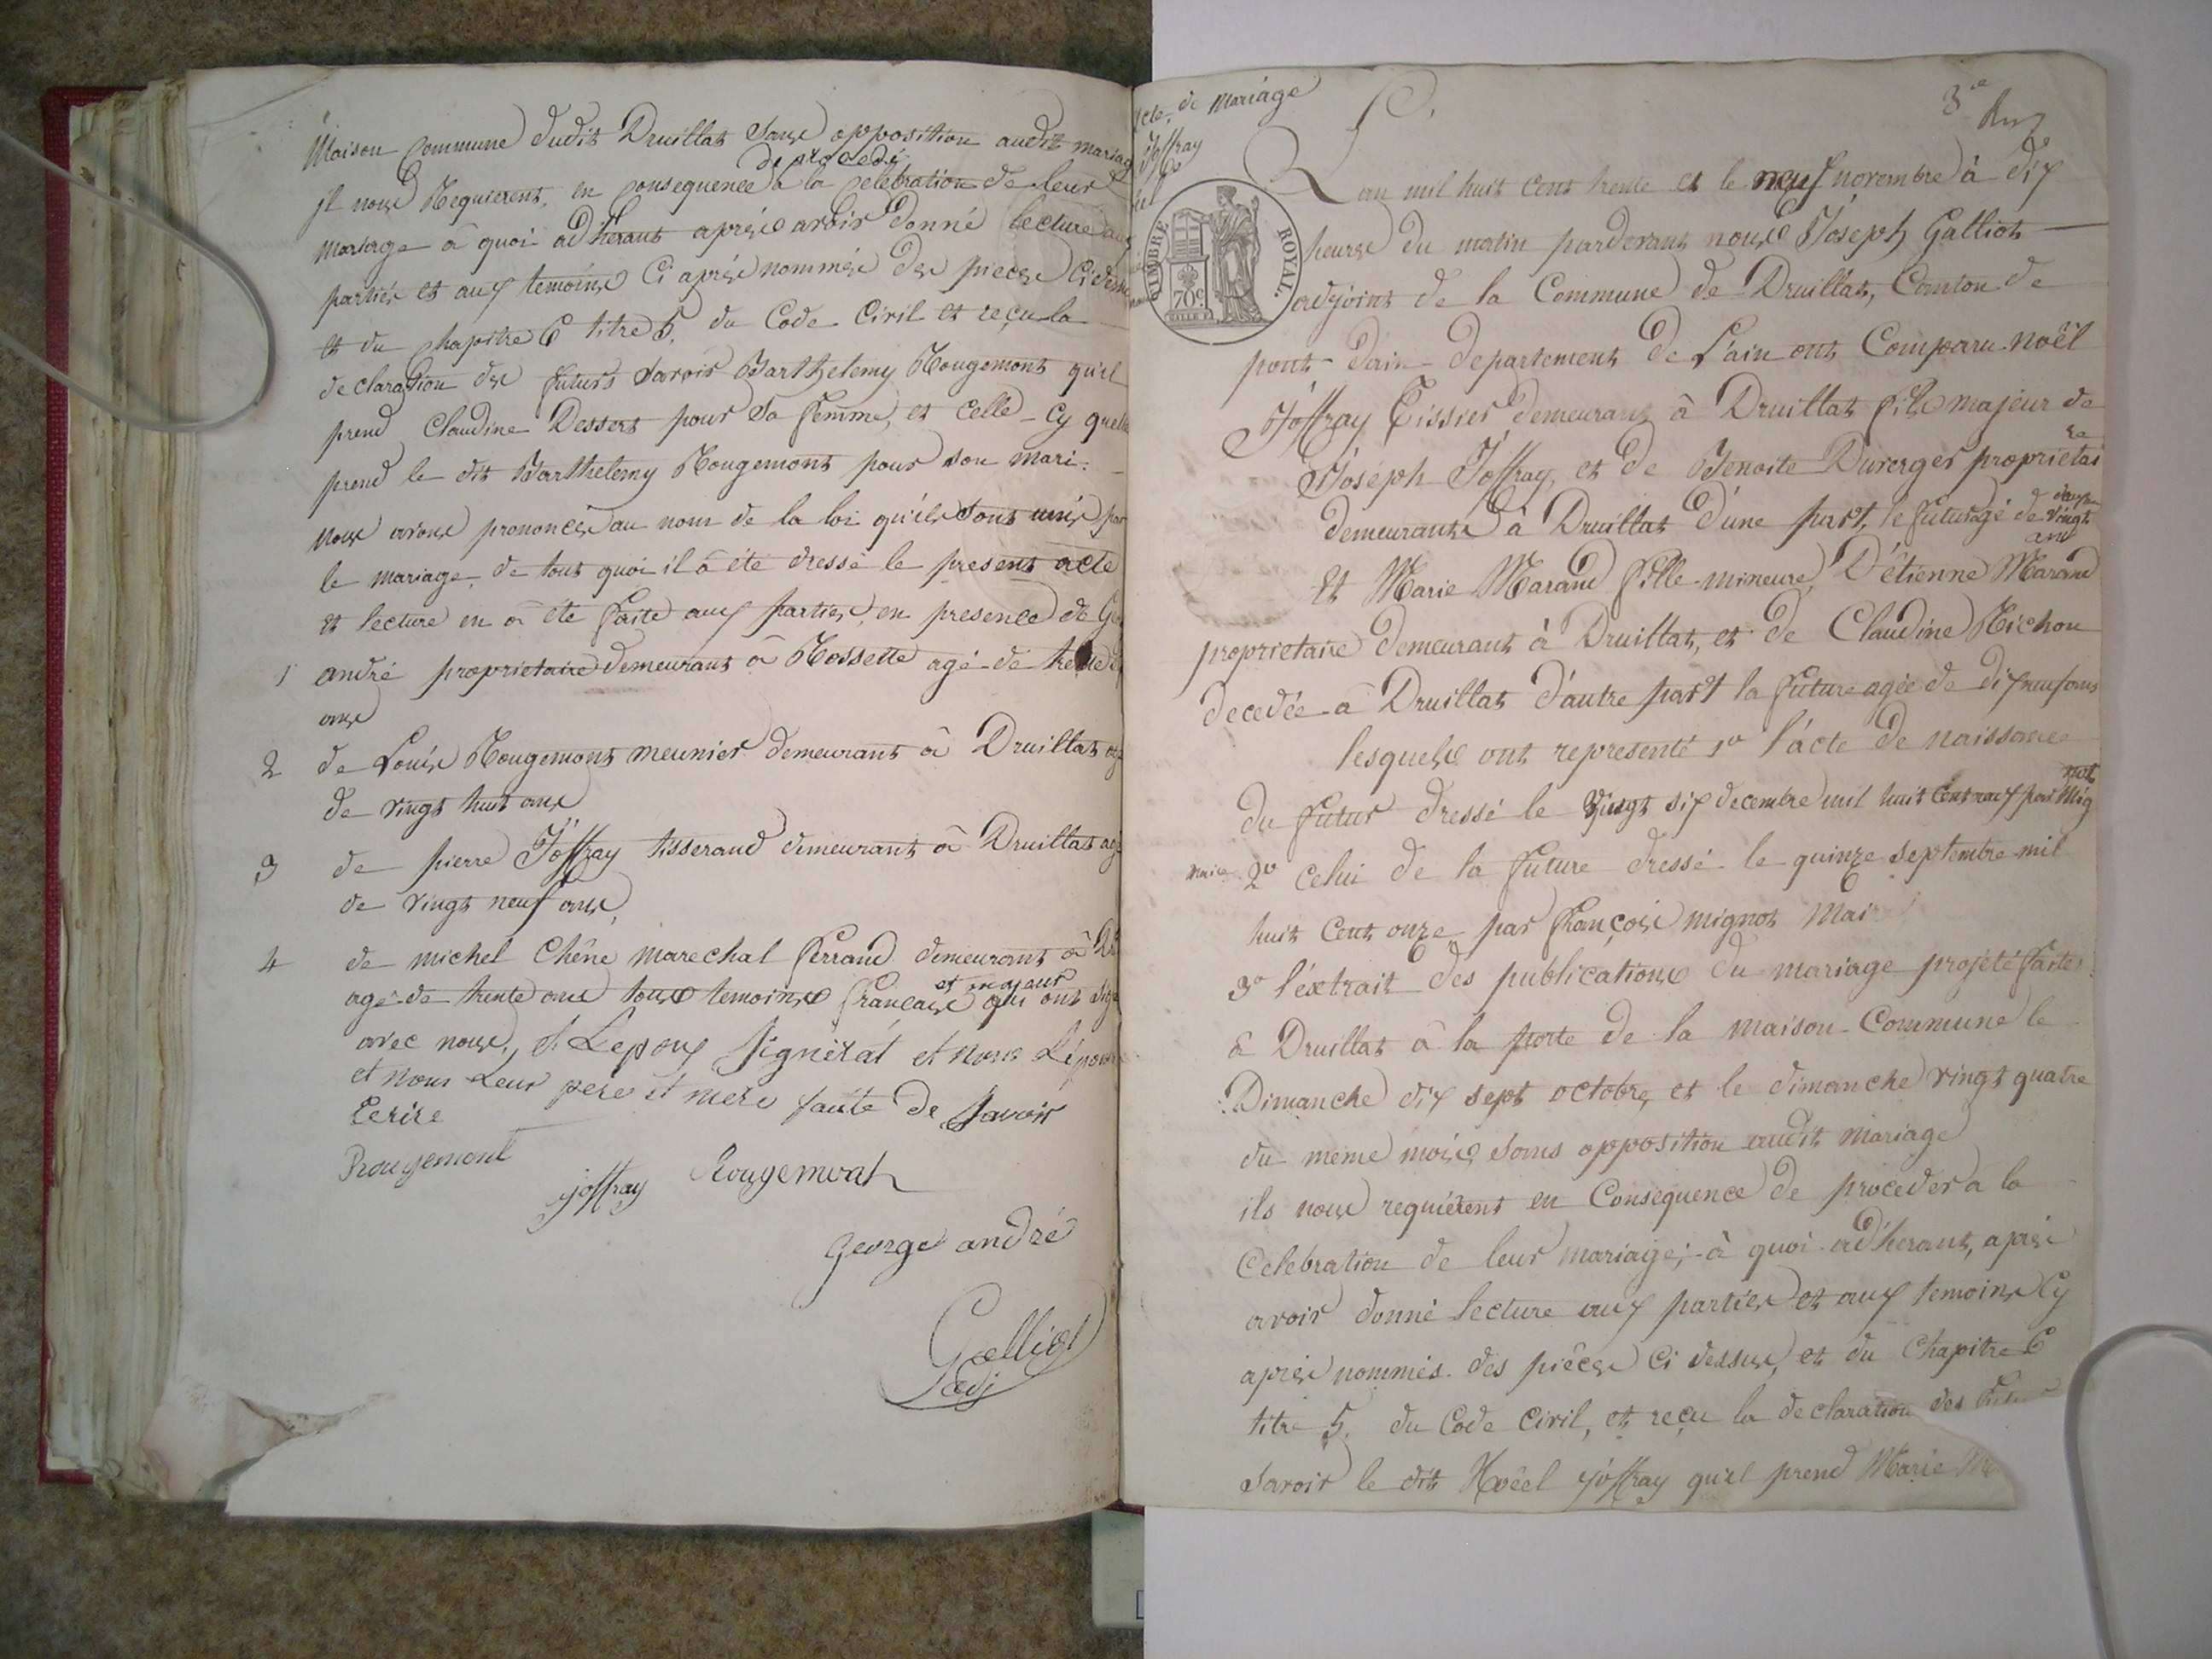 Maison Commune dudit Druillat sans opposition audit mariag
de procedé
il nous Requierent, en consequence à la celebration de leur
mariage à quoi adhérant après avoir donné lecture aux
partiés et aux temoins Ci après nommés des pieces Cidessu
et du chapitre 6 titre 5, du Code Civil et reçu la
declaration des futurs savoir Barthelemy Rougemont qu'il
prend Claudine Dessert pour sa femme, et celle-Cy quelle
prend le dit Barthelemy Rougemont pour son mari.
nous avons prononcés au nom de la loi qu'ils sont unis par
le mariage. de tout quoi il à été dressé le present acte
et lecture en à été faite aux parties, en presence de
1 andré proprietaire demeurant à Rossette agé de
ans
2 de Louis Rougemont meunier demeurant à Druillat
de vingt huit ans
3 de pierre Joffray tisserand demeurant à Druillat agé
de vingt neuf ans,
4 de michel Chêne marechal ferrand demeurant à
et majeur
agé de trente ans tous temoins français qui ont sig
avec nous,
et nom Leur pere et mere faute de savoir
Ecrire
Rougemont
joffray Rougemont
George andré
Galliot
adj
Acte de Mariage
Joffray
3e
TIMBRE ROYAL.
70c
L'an mil huit cent trente et le neuf novembre à dix
heures du matin pardevant nous Joseph Galliot
adjoint de la Commune de Druillat, Canton de
pont-dain departement de L'ain ont Comparu noël
Joffray Tissier demeurant à Druillat fils majeur de
re
Joseph Joffray, et de Benoite Duverger proprietai
demeurants à Druillat d'une part, le futur agé de vingt
ans
Et Marie Marand fille mineure, D'étienne Marand
proprietaire demeurant à Druillat, et de Claudine Michon
decedée à Druillat d'autre part la future agée de dix neuf ans
lesquels ont representé 1o l'acte de naissance
not
du futur dressé le vingt six decembre mil huit cent neuf par Mig
maire 2o celui de la future dressé le quinze septembre mil
huit Cent onze par françois mignot Mair
3o l'éxtrait des publications du mariage projeté faites
à Druillat à la porte de la maison Commune le
Dimanche dix sept octobre, et le dimanche vingt quatre
du même mois sans opposition audit mariage
ils nous requiérent en Consequence de proceder à la
Celebration de leur mariage; à quoi adhérant, après
avoir donné lecture aux parties et aux temoins Cy
après nommés des pièces Ci dessus, et du Chapitre 6
titre 5. du Code Civil, et reçu la declaration des futur
Savoir le dit Noêel joffray qu'il prend Marie